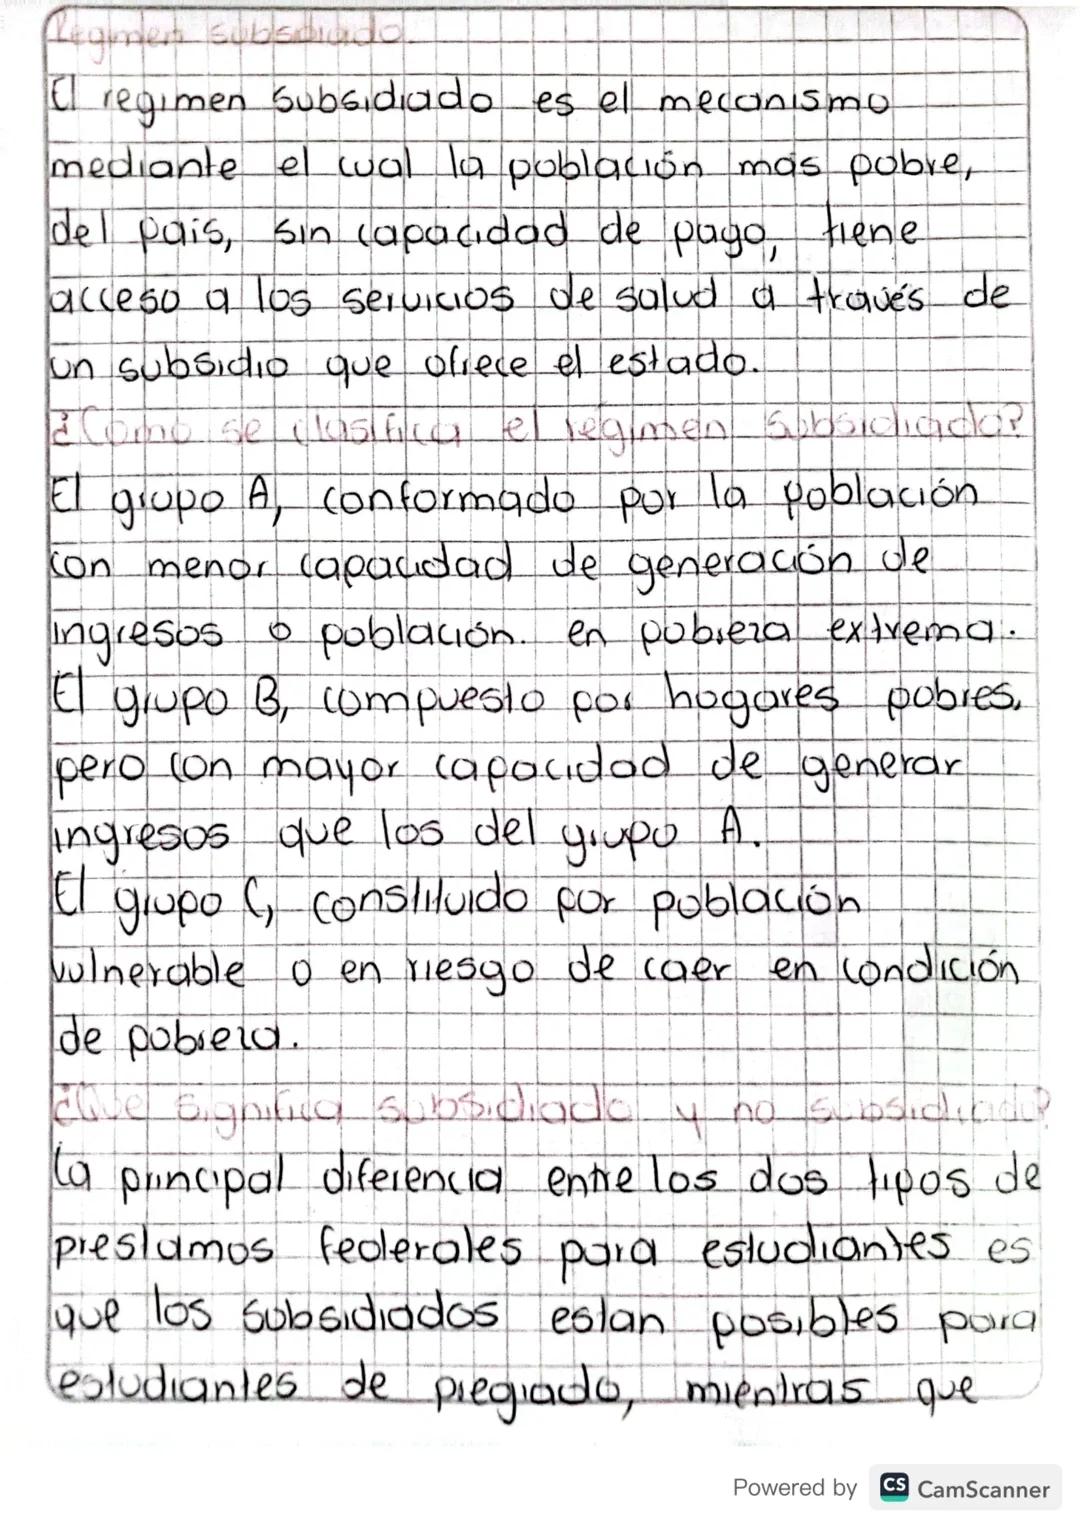 Regimen subsidiado.
El regimen subsidiado es el mecanismo
mediante el cual la población más pobre,
del pais, sin capacidad de pago, tiene
acceso a los servicios de salud a través de
un subsidio que ofrece el estado.
¿Como se clasifica el régimen subsidiado?
El grupo A, conformado por la población
con menor capacidad de generación de
ingresos o población. en pobreza extrema.
El grupo B, compuesto por hogares pobres,
pero con mayor capacidad de generar
ingresos que los del grupo A.
El grupo C, constituido por población
vulnerable o en riesgo de caer en condición
de pobreza.
¿Que significa subsidiado y no subsidiado?
La principal diferencia entre los dos tipos de
prestamos federales para estudiantes es
que los subsidiados estan posibles para
estudiantes de pregrado, mientras que
Powered by CS CamScanner